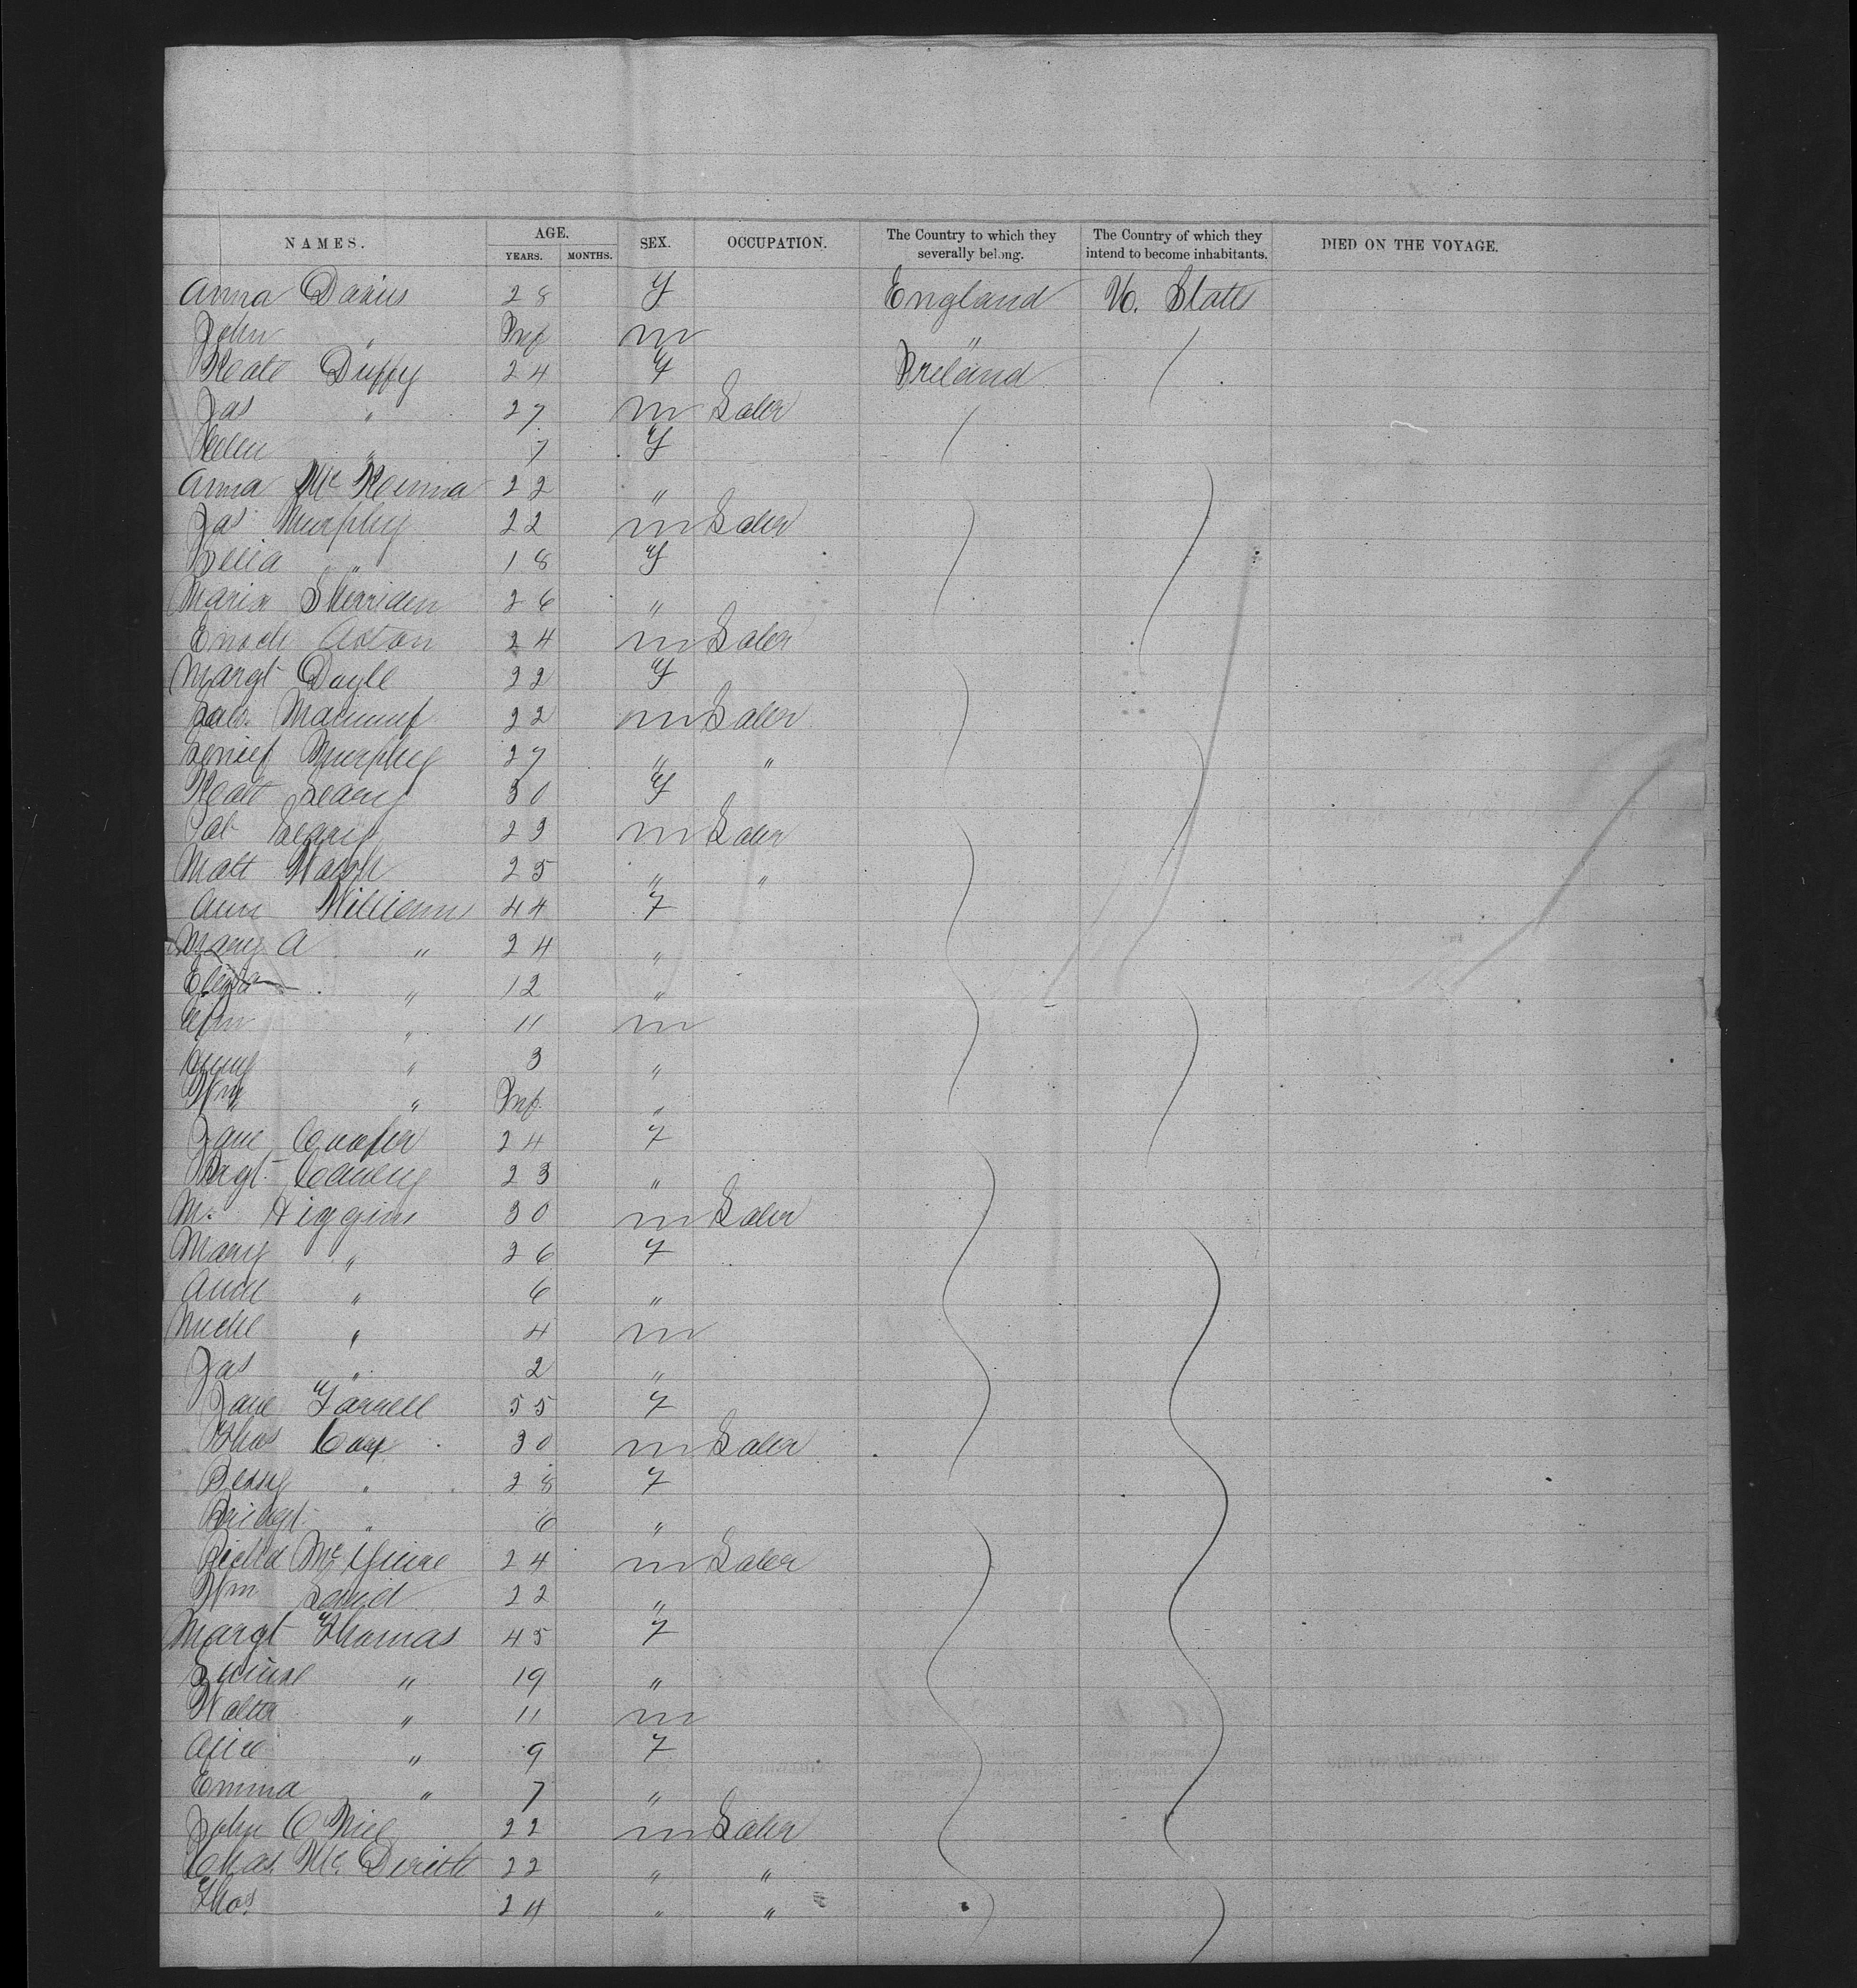 NAMES. AGE. SEX. OCCUPATION. The Country to which they severally belong. The Country of which they intend to become inhabitants. DIED ON THE VOYAGE.
YEARS. MONTHS.
Anna Davis 28 F England U. States
John " Inf m "
Kate Duffy 24 F Ireland
Jas " 27 m Labr
Ellen " 7 F
Anna McKenna 22 "
Jas Murphy 22 m Labr
Delia " 18 F
Maria Sherriden 26 "
Enoch Aston 24 m Labr
Margt Doyle 22 F
22 m Labr
Murphy 27 " "
Kate Leary 30 F
Pat Leary 23 m Labr
Matt Walsh 25 " "
Ann Williams 44 F
Mary A " 24 "
Eliza " 12 "
" 11 m
" 3 "
Wm " Inf "
Jane Cooper 24 F
Brgt 23 "
M. Higgins 30 m Labr
Mary " 26 F
Anne " 6 "
Michl " 4 m
Jas " 2 "
Jane Farrell 55 F
Thos Cox 30 m Labr
Bessy " 28 F
Bridgt " 6 "
Richd McGuire 24 m Labr
Wm 22 "
Margt Thomas 45 F
Louisa " 19 "
Walter " 11 m
Alice " 9 F
Emma " 7 "
John O'Niel 22 m Labr
Chas 22 " "
Thos. 24 " "